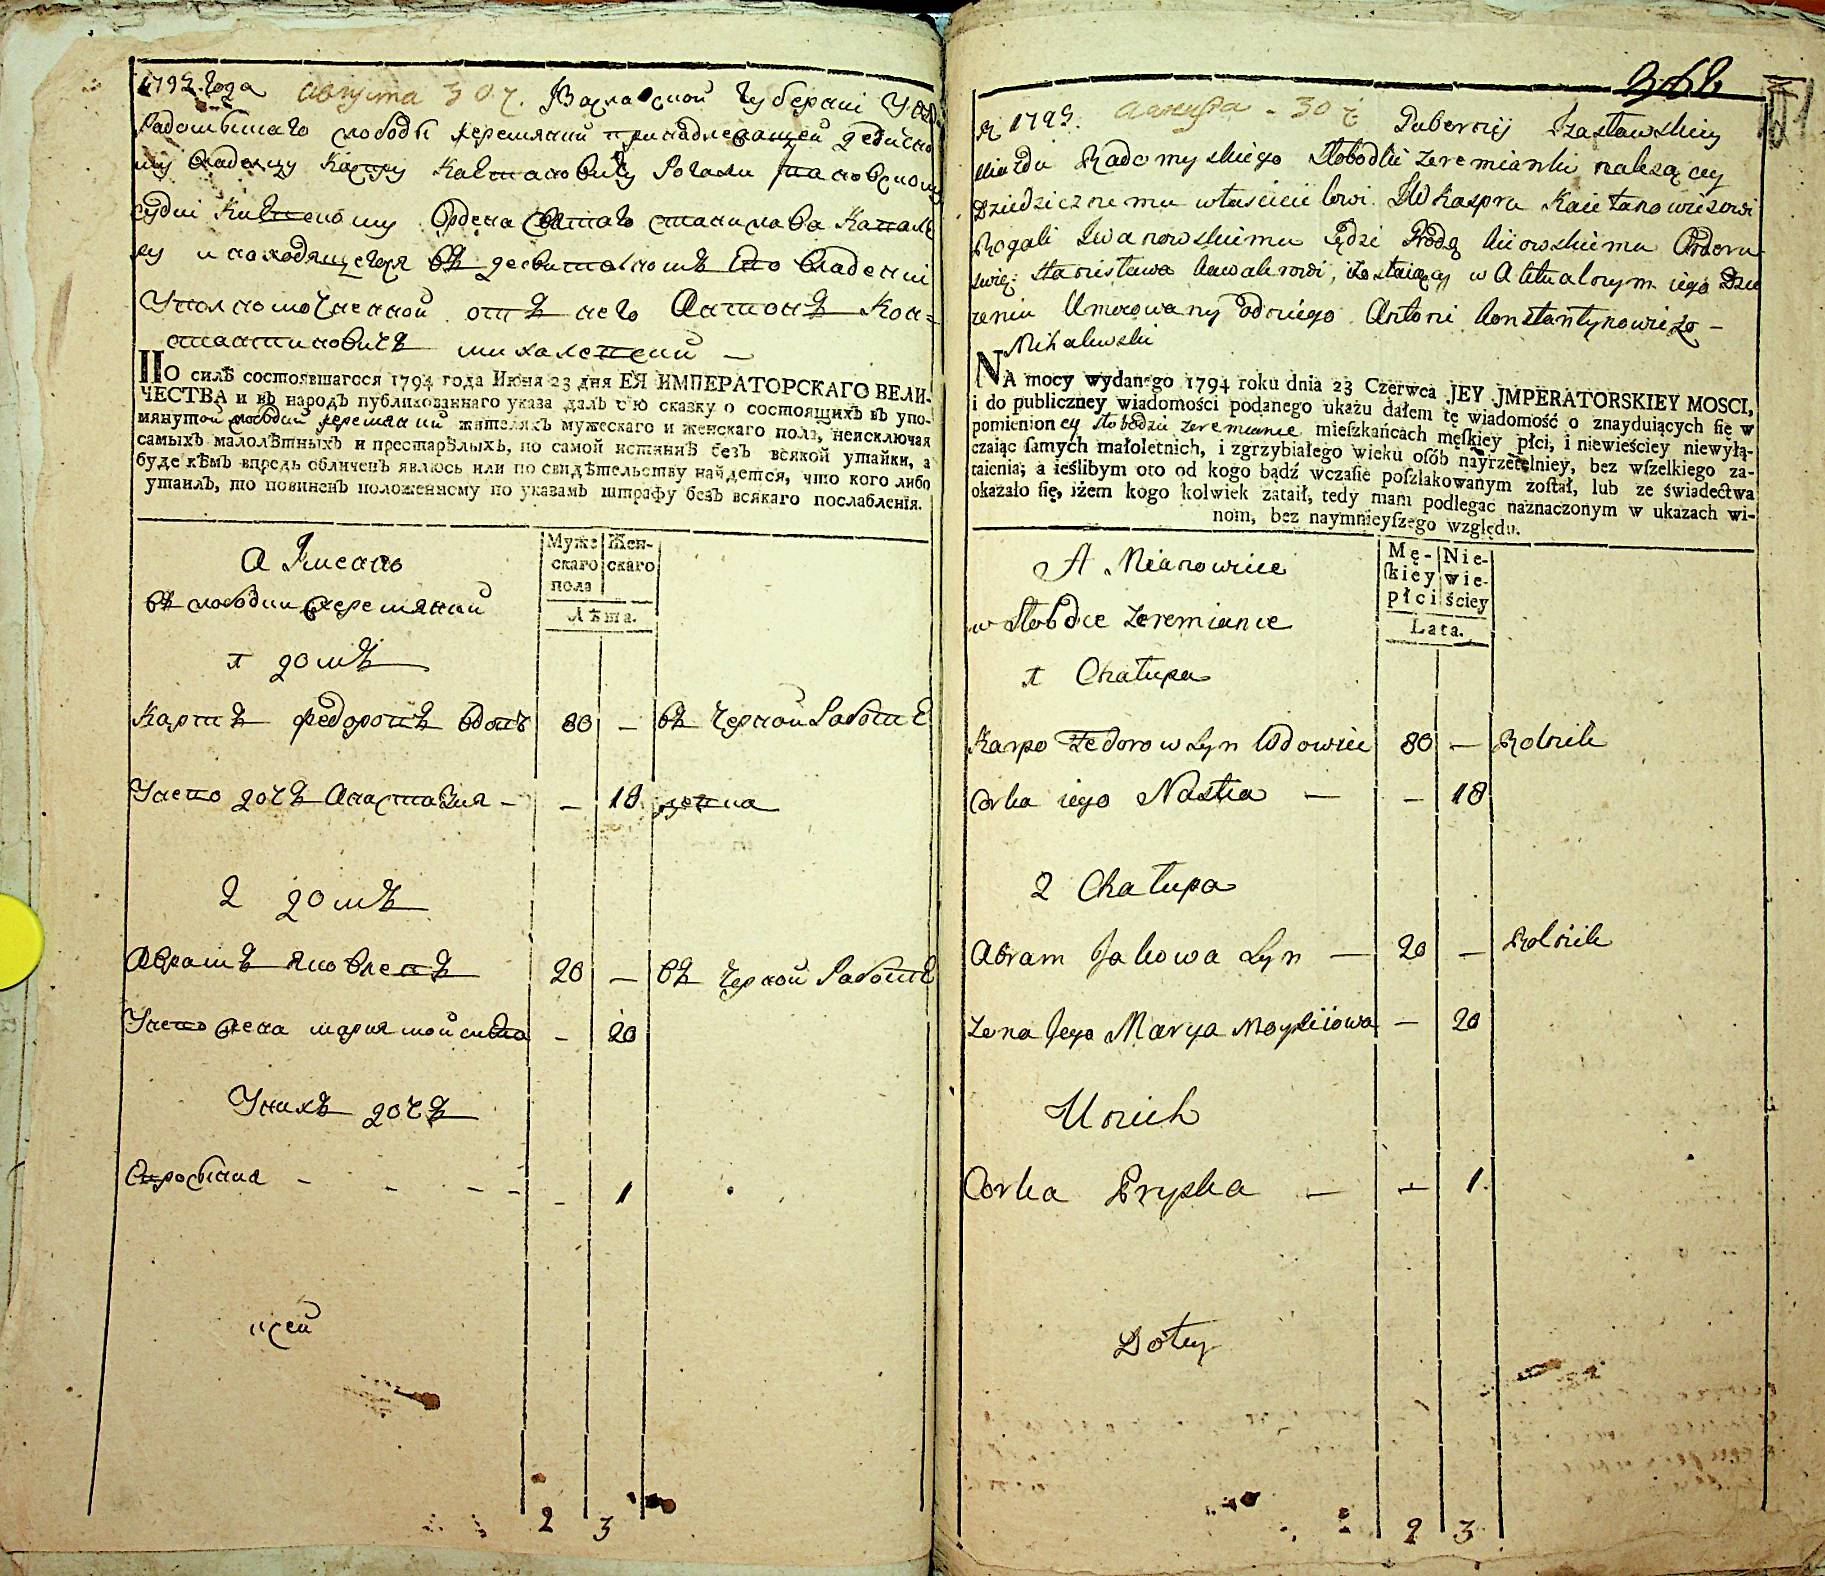 1795. Года августа 30 ч. Изаславской Губерніи Уез.
Радомышлаго слободы Жеремянки принадлежащей дедично
му владелцу Каспру Каетановичу Рогали Ивановскому
судии Киевскому Ордена святаго станислава Кавале
ру и находящегося въ десвителномъ Его владении
Уполномоченной отъ него Антонъ Кон=
стантиновичъ михалевский —
ПО силѣ состоявшагося 1794 года Июня 23 дня ЕЯ ИМПЕРАТОРСКАГО ВЕЛИ-
ЧЕСТВА и въ народъ публикованнаго указа далъ сію сказку о состоящихъ въ упо-
мянутой слободки жеремянки жителяхъ мужескаго и женскаго пола, неисключая
самыхъ малолѣтныхъ и престарѣлыхъ, по самой истиннѣ безъ всякой утайки, а
буде кѣмъ впредь обличенъ явлюсь или по свидѣтельству найдется, что кого либо
утаилъ, то повиненъ положенному по указамъ штрафу безъ всякаго послабленія.
А Имеано
въ слободки жеремянки
Муже
скаго
пола
Жен-
скаго
Лѣта.
1 домъ
Карпъ Федоровъ вдовъ 80 — въ черной работе
У него дочь Анастазия - — 18 девка
2 домъ
Аврамъ Яковлевъ 20 — въ черной работе
У него жена мария мойсиева — 20
У нихъ дочь
Евросиния - - - - — 1
всей
2 3
368
R 1795. августа - 30 ч Gubernij Izasławskiey
Uiazdu Radomyskiego Słobodki Zeremianki nalezącey
Dziedzicznemu właścicielowi JW Kaspru Kaietanowiczowi
Rogali Iwanowskiemu Sędzi Grodz Kiiowskiemu Orderu
święt: Stanisława Kawalerowi, i zostaiącey w Aktualnym iego Dzie
rzeniu Umocowany od niego Antoni Konstantynowicz —
Mihalewski
NA mocy wydanego 1794 roku dnia 23 Czerwca JEY JMPERATORSKIEY MOSCI,
i do publiczney wiadomości podanego ukazu dałem tę wiadomość o znayduiących się w
pomienioney słobodzie Zeremiance mieſzkańcach męſkiey płci, i niewieściey niewyłą-
czaiąc ſamych małoletnich, i zgrzybiałego wieku osób nayrzetelniey, bez wſzelkiego za-
taienia; a ieślibym oto od kogo bądź wczaſie poſzlakowanym zoſtał, lub ze świadectwa
okazało ſię, iżem kogo kolwiek zataił, tedy mam podlegać naznaczonym w ukazach wi-
nom, bez naymnieyſzego względu.
A Mianowicie
w Słobdce Zeremiance
Mę-
ſkiey
płci
Nie-
wie-
ściey
Lata.
1 Chałupa
Karpo Fedorow Syn Wdowiec 80 — Rolnik
Corka iego Nastia — — 18
2 Chałupa
Abram Jakowa Syn — 20 — Rolnik
Zona Jego Marya Moysiiowa — 20
U nich
Corka Pryska — — 1
Doley
2 3